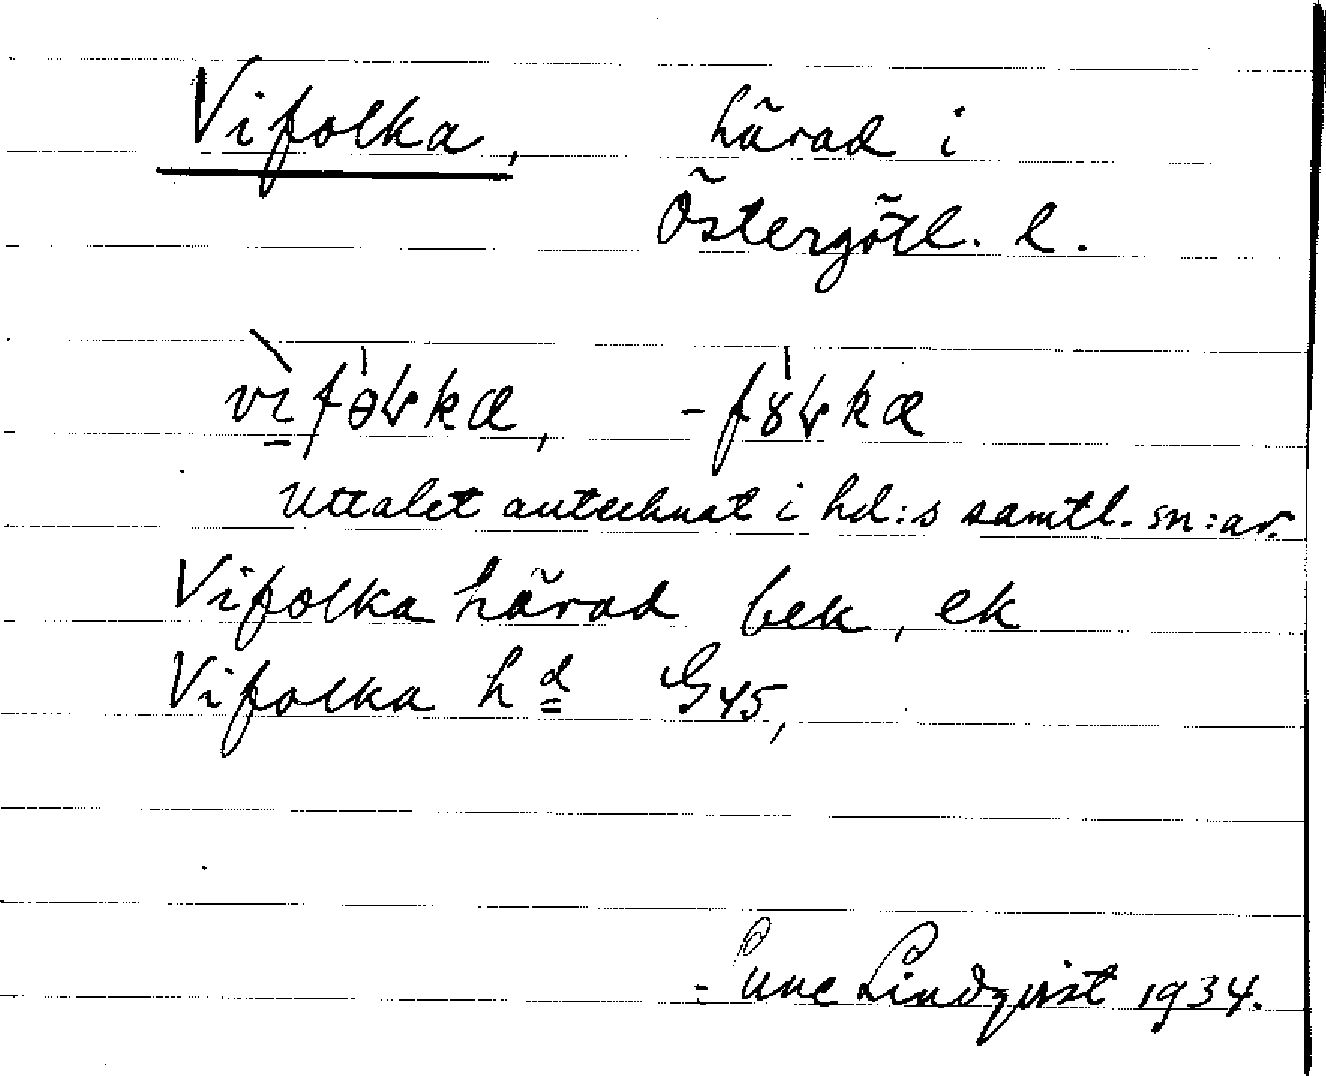 Vifolka, härad i
Östergötl. l.
vìfəɽka, -fɤɽka
Uttalet antecknat i hd:s samtl. sn:ar.
Vifolka härad bek, ek
Vifolka hd G45,
Sune Lindqvist 1934.